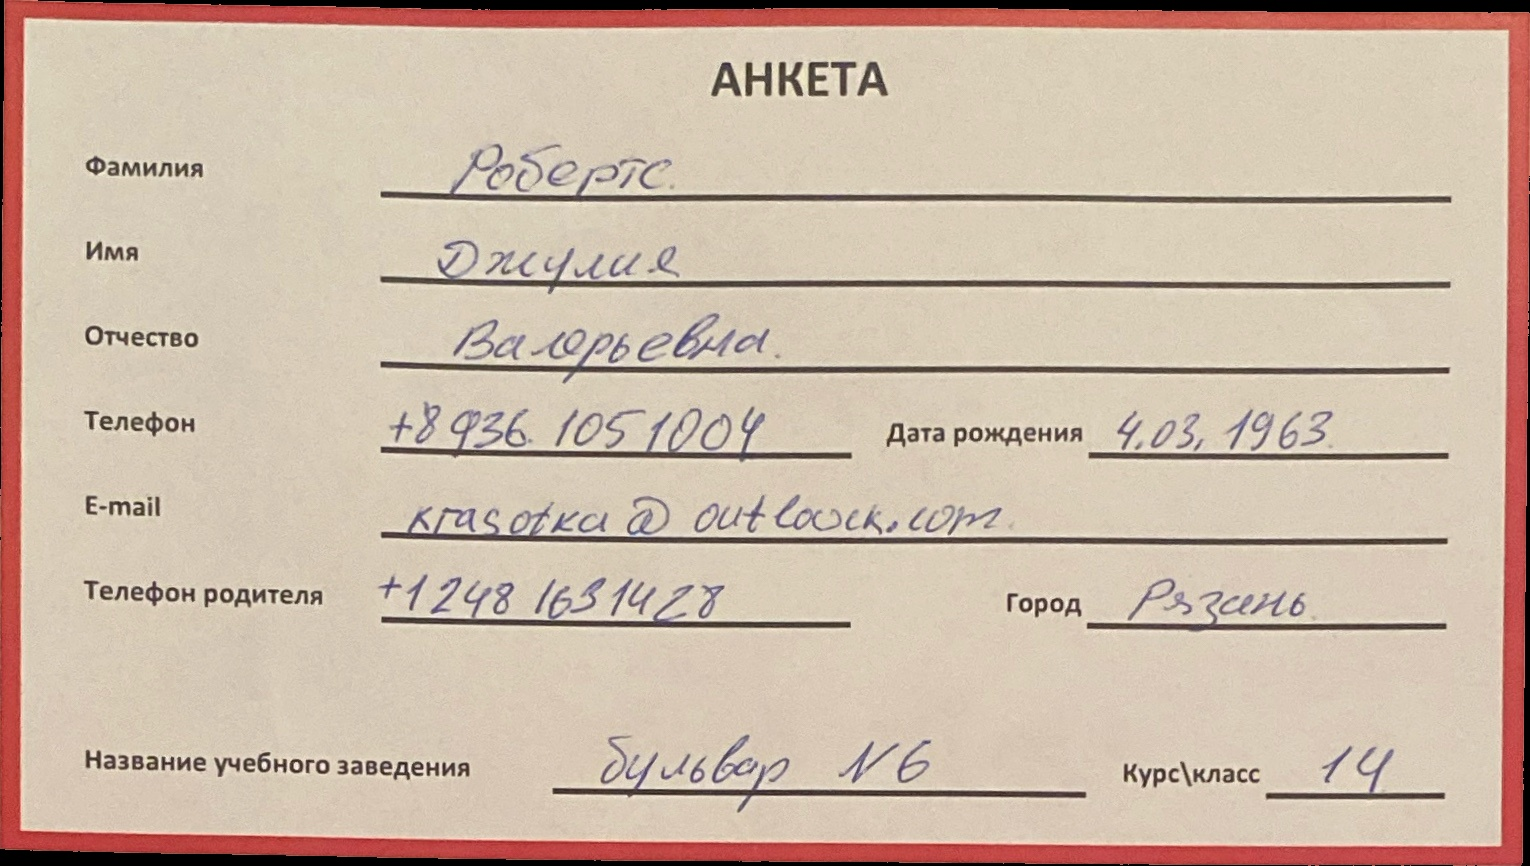 АНКЕТА
Фамилия Робертс.
Имя Джулия
Отчество Валерьевна.
Телефон +8 936. 105 1004 Дата рождения 4.03. 1963.
E-mail krasotka@outloock.com.
Телефон родителя +1 248 1631428 Город Рязань.
Название учебного заведения бульвар N6 Курс\класс 14